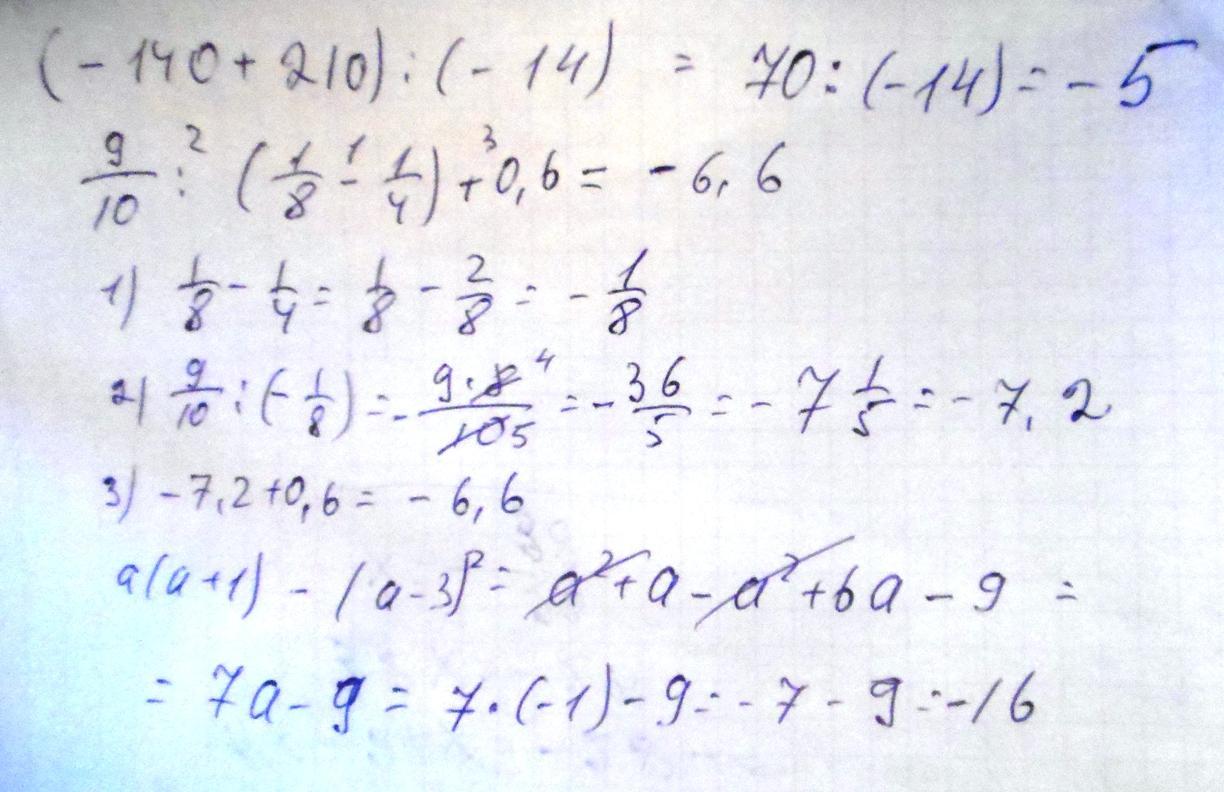 (-140+210):(-14) = 70:(-14)=-5
9/10 :² (1/8 -¹ 1/4) +³ 0,6 = -6,6
1) 1/8 - 1/4 = 1/8 - 2/8 = -1/8
2) 9/10 : (-1/8) = - 9·8 4/10 5 = - 36/5 = - 7 1/5 = - 7,2
3) -7,2+0,6 = -6,6
a(a+1) - (a-3)² = a²+a-a²+6a-9 =
= 7a-9 = 7·(-1)-9=-7-9=-16